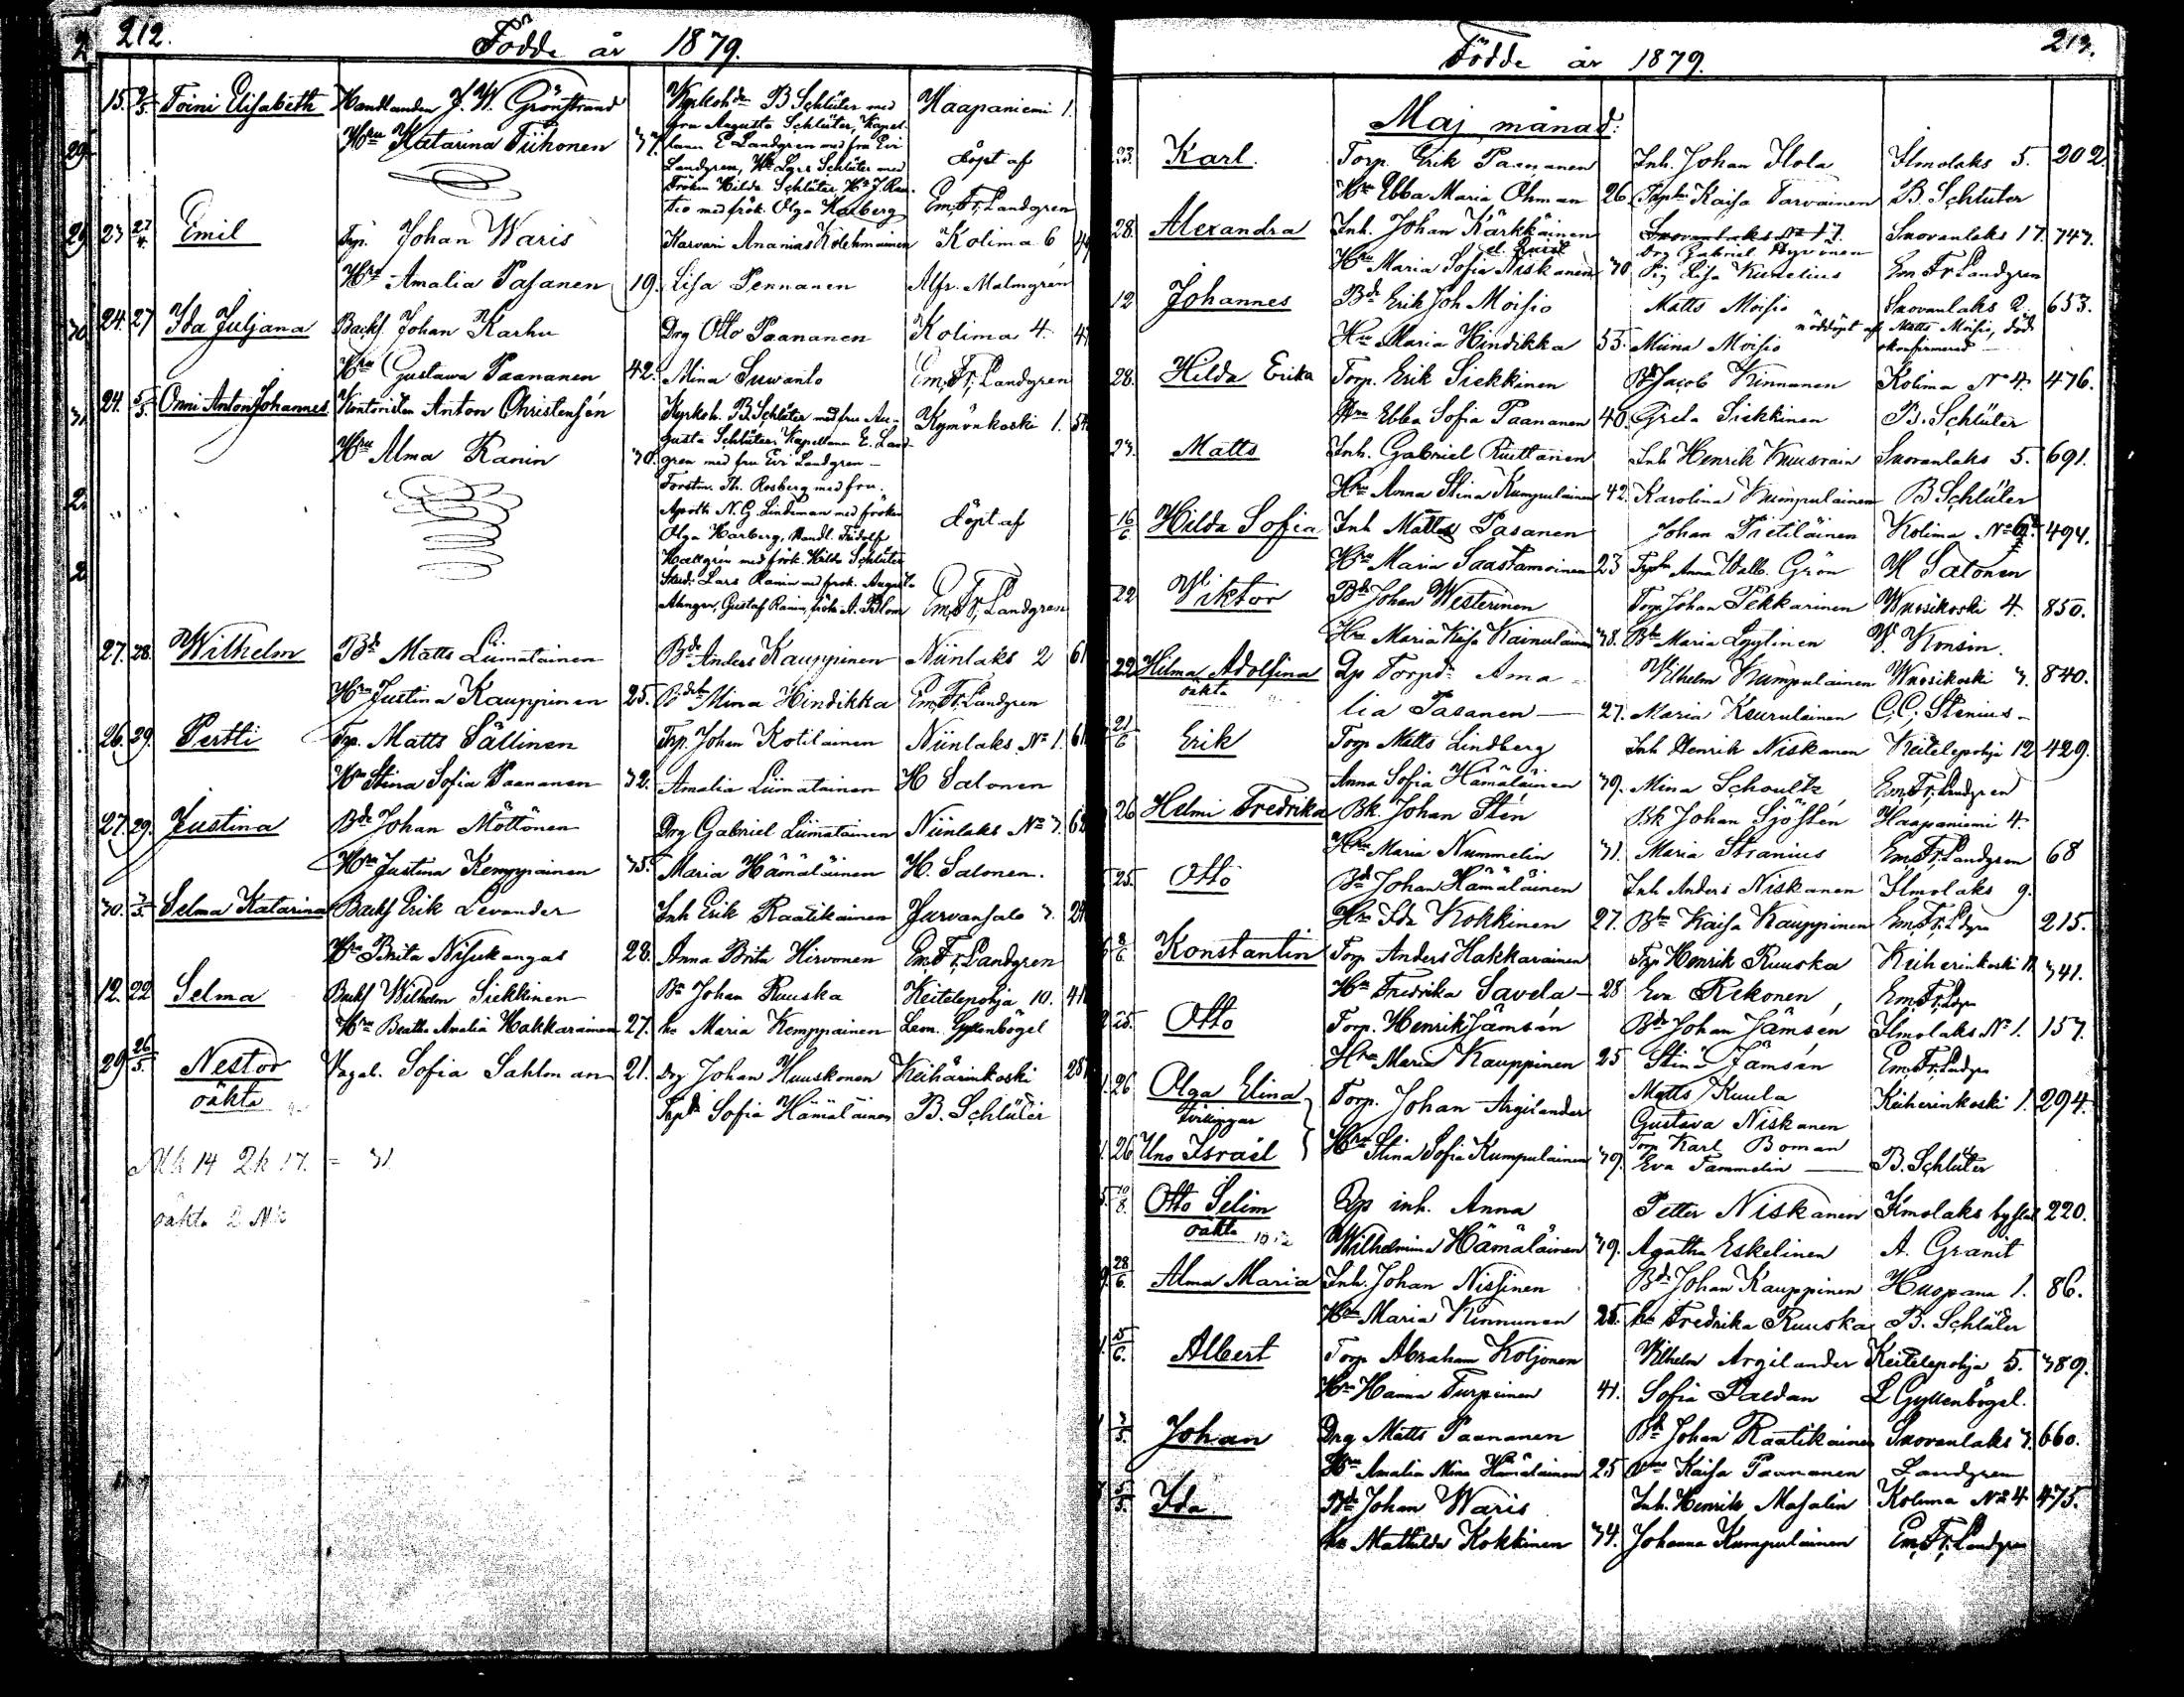 212.
Födde år 1879.
15. 9/5. Toini Elisabeth Handlanden J. W. Grönstrand Kyrkoh. B Schlüter med Haapaniemi 1.
fru Augusta Schlüter, Kapel-
Hru Katarina Tiihonen 37. lanen E Landgren med fru Evi
Landgren, Lars Schlüter med döpt af
Fröken Hilda Schlüter,
med frök. Olga Harberg Em. Fr. Landgren
23 27/4. Emil Trp. Johan Waris Karvari Ananias Kolehmainen Kolima 6
Hru Amalia Pasanen 19. Lisa Pennanen Alfr. Malmgren
24. 27 Ida Juljana Backs. Johan Karhu Drg Otto Paananen Kolima 4.
Hru Gustawa Paananen 42. Mina Suwanto Em. Fr. Landgren
24. 5/5. Onni Anton Johannes Kontoristen Anton Christensén Kyrkoh. B. Schlüter med fru Au- Kymönkoski 1.
gusta Schlüter, Kapellanen E. Land-
Hru Alma Ranin 30. gren med fru Evi Landgren –
Forstm. Th. Rosberg med fru.
Apothk N. G. Lindeman med fröken döpt af
Olga Harberg, Handl. Fridolf
Hallgrén med frök. Hilda Schlüter
Stud. Lars Ranin med frök. Augusta
Ahnger, Gustaf Ranin, frök A. Blom Em. Fr. Landgren
27. 28. Wilhelm Bd Matts Liimatainen Bd Anders Kauppinen Niinlaks 2
Hru Justina Kauppinen 25. Mina Hindikka Em. Fr. Landgren
26. 29. Pertti Trp. Matts Sällinen Trp. Johan Kotilainen Niinlaks No 1.
Hru Stina Sofia Paananen 32. Amalia Liimatainen H Salonen
27. 29. Justina Bd Johan Möttönen Drg Gabriel Liimatainen Niinlaks No 3.
Hru Justina Kemppainen 35. Maria Hämäläinen H. Salonen.
30. 3/5. Selma Katarina Backs Erik Levander Inh Erik Raatikainen Jurvansalo 3.
Hru Brita Nisukangas 28. Anna Brita Hirvonen Em. Fr. Landgren
12. 22 Selma Backs Wilhelm Siekkinen Johan Ruuska Keitelepohja 10.
Hru Beatha Amalia Hakkarainen 27. Maria Kemppainen Leon. Gyllenbögel
29 26/5. Nestor Sofia Sahlman 21. drg Johan Huuskonen Keihärinkoski
oäkta Sofia Hämäläinen B. Schlüter
Mk 14 2k 17. = 31
oäkta 2 Mk
213.
Födde år 1879.
Maj månad:
23. Karl. Torp. Erik Paananen Inh. Johan Ilola Ilmolaks 5. 202.
Hru Ebba Maria Öhman 26. Kaisa Tarvainen B. Schlüter
28. Alexandra Inh. Johan Kärkkäinen Suovanlaks No 17. Suovanlaks 17. 747.
Drg Gabriel Hyvönen
Hru Maria Sofia Niskanen 30. Pig Lisa Kumelius Em Fr Landgren
12 Johannes Bd Erik Joh Moisio Matts Moisio Suovanlaks 2. 653.
nöddöpt af Matts Moisio, död
Hru Maria Hindikka 33. Miina Moisio okonfirmerad
28. Hilda Erika Torp. Erik Siekkinen Bd Jacob Kinnunen Kolima No 4. 476.
Hru Ebba Sofia Paananen 40. Greta Siekkinen B. Schlüter
23. Matts Inh. Gabriel Ruittanen Inh Henrik Suovanlaks 5. 691.
Hru Anna Stina Kumpulainen 42. Karolina Kumpulainen B Schlüter
16/6 Hilda Sofia Inh Matts Pasanen Johan Pietiläinen Kolima No 494.
Hru Maria Saastamoinen 23 Anna Walb. Grön H Salonen
22 Viktor Bd Johan Westerinen Torp Johan Pekkarinen Wuosikoski 4. 850.
Hru Maria Kaisa Kainulainen 38. Maria Lyytinen V. Konsin.
22 Hilma Adolfina Qp Torpd. Ama- Wilhelm Kumpulainen Wuosikoski 3. 840.
oäkta lia Pasanen — 27. Maria Keurulainen C. C. Stenius –
21/6 Erik Torp Matts Lindberg Inh Henrik Niskanen Keitelepohja 12 429.
Anna Sofia Hämäläinen 39. Mina Schoultz Em. Fr. Landgren
26 Helmi Fredrika Bk. Johan Stén Bk Johan Sjöstén Haapaniemi 4.
Hru Maria Nummelin 31. Maria Stranius Em. Fr. Landgren 68
25. Otto Bd Johan Hämäläinen Inh Anders Niskanen Ilmolaks 9.
Hru Ida Kokkinen 27. Kaisa Kauppinen Em. Fr. Ldgrn 215.
8/6. Konstantin Torp Anders Hakkarainen Trp Henrik Ruuska Keiherinkoski 341.
Hru Fredrika Savela – 28 Eva Rekonen
25. Otto Torp. Henrik Jämsén Bd Johan Jämsén Ilmolaks No 1. 157.
Hru Maria Kauppinen 25 Stina Jämsén Em. Fr. Landgren
26 Olga Elina Torp. Johan Argilander Matts Kuula Keiherinkoski 1. 294.
tvillingar Gustava Niskanen
Torp Karl Boman
26 Uno Israël Hru Stina Sofia Kumpulainen 39. Eva Tammelin — B. Schlüter
10/8. Otto Selim Qp inh. Anna Petter Niskanen Ilmolaks 220.
oäkta Wilhelmina Hämäläinen 39. Agatha Eskelinen A. Granit
28/6. Alma Maria Inh. Johan Nissinen Bd Johan Kauppinen Huopana 1. 86.
Hru Maria Kinnunen 25. Fredrika Ruuska B. Schlüter
15/6. Albert Torp Abraham Koljonen Wilhelm Argilander Keitelepohja 5. 389.
Hru Hanna Turpeinen 41. Sofia Paldan L Gyllenbögel.
3/5. Johan Drg Matts Paananen Bd Johan Raatikainen Suovanlaks 3. 660.
Hru Amalia Mina Hämäläinen 25 Kaisa Paananen Landgren
5/5. Ida Bd Johan Waris Inh. Henrik Masalin Kolima No 4 475.
Mathilda Kokkinen 34. Johanna Kumpulainen Em. Fr. Landgren